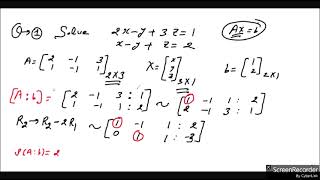 Q→① Solve 2x-y+3z=1 Ax=b
x-y+z=2
A=[2 -1 3 X=[x b=[1
1 -1 1]2X3 y 2]2X1
z]3X1
[A:b]=[2 -1 3 : 1 ~[1 -1 1 : 2
1 -1 1 : 2] 2 -1 3 : 1]
R2→R2-2R1 ~[1 -1 1 : 2
0 1 1 : -3]
ρ(A:b)=2
ScreenRecorder
By CyberLink